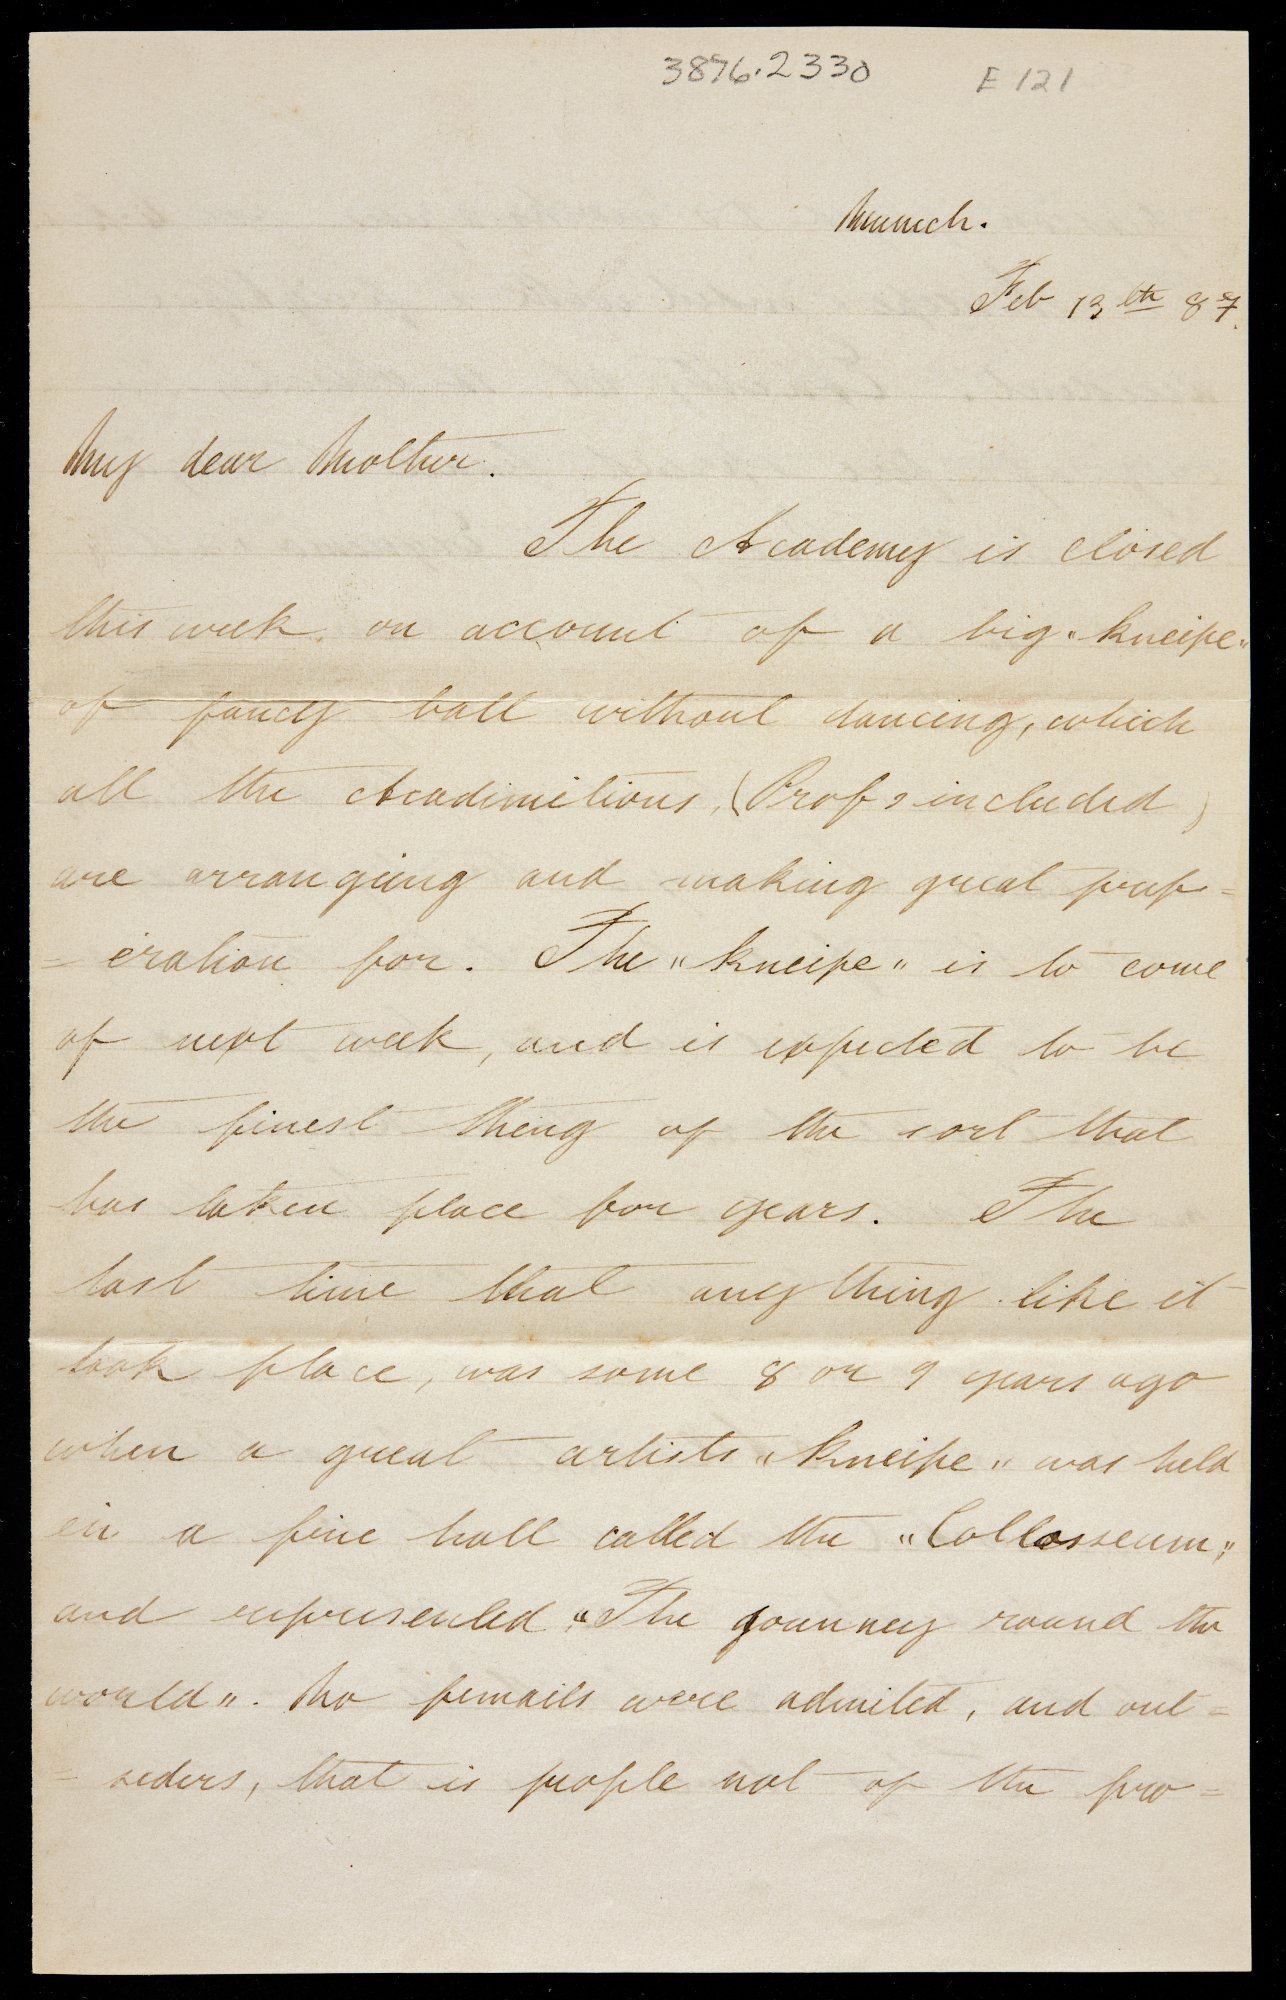 3876.2330
E 121
Munich.
Feb 13th 87.
My dear Mother.
The Academy is closed
this week on account of a big "kneipe"
of fancy ball without dancing, which
all the Acadimitions, (Profs included)
are arranging and making great prep=
=eration for. The "kneipe" is to come
of next week, and is expected to be
the finest thing of the sort that
has taken place for years. The
last time that any thing like it
took place, was some 8 or 9 years ago
when a great artists "kneipe" was held
in a fine hall called the "Collosseum,"
and represented "The journey round the
world". No femails were admited, and out=
=siders, that is people not of the pro=